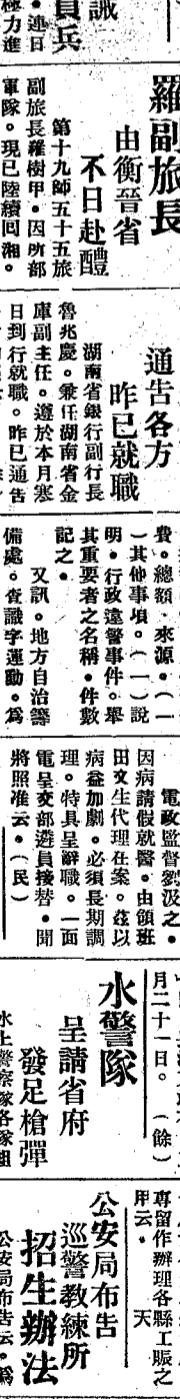 誡
員兵
•連日
極力進
羅副旅長
由衡晉省
不日赴醴
第十九師五十五旅
副旅長羅樹甲•因所部
軍隊•現已陸續回湘•
通告各方
昨已就職
湖南省銀行副行長
魯兆慶•兼任湖南省金
庫副主任•遵於本月寒
日到行就職•昨已通告
費•總額•來源•(一
)其他事項•(一)說
明•行政違警事件•舉
其重要者之名稱•件數
記之•
又訊•地方自治籌
備處•查識字運動•爲
電政監督劉汲之•
因病請假就醫•由領班
田文生代理在案•茲以
病益加劇•必須長期調
理•特具呈辭職•一面
電呈交部遴員接替•聞
將照准云•(民)
月二十一日•(餘)
水警隊
呈請省府
發足槍彈
水上警察隊各隊組
專留作辦理各縣工賑之
用云•天
公安局布告
巡警教練所
招生辦法
公安局布告云•爲